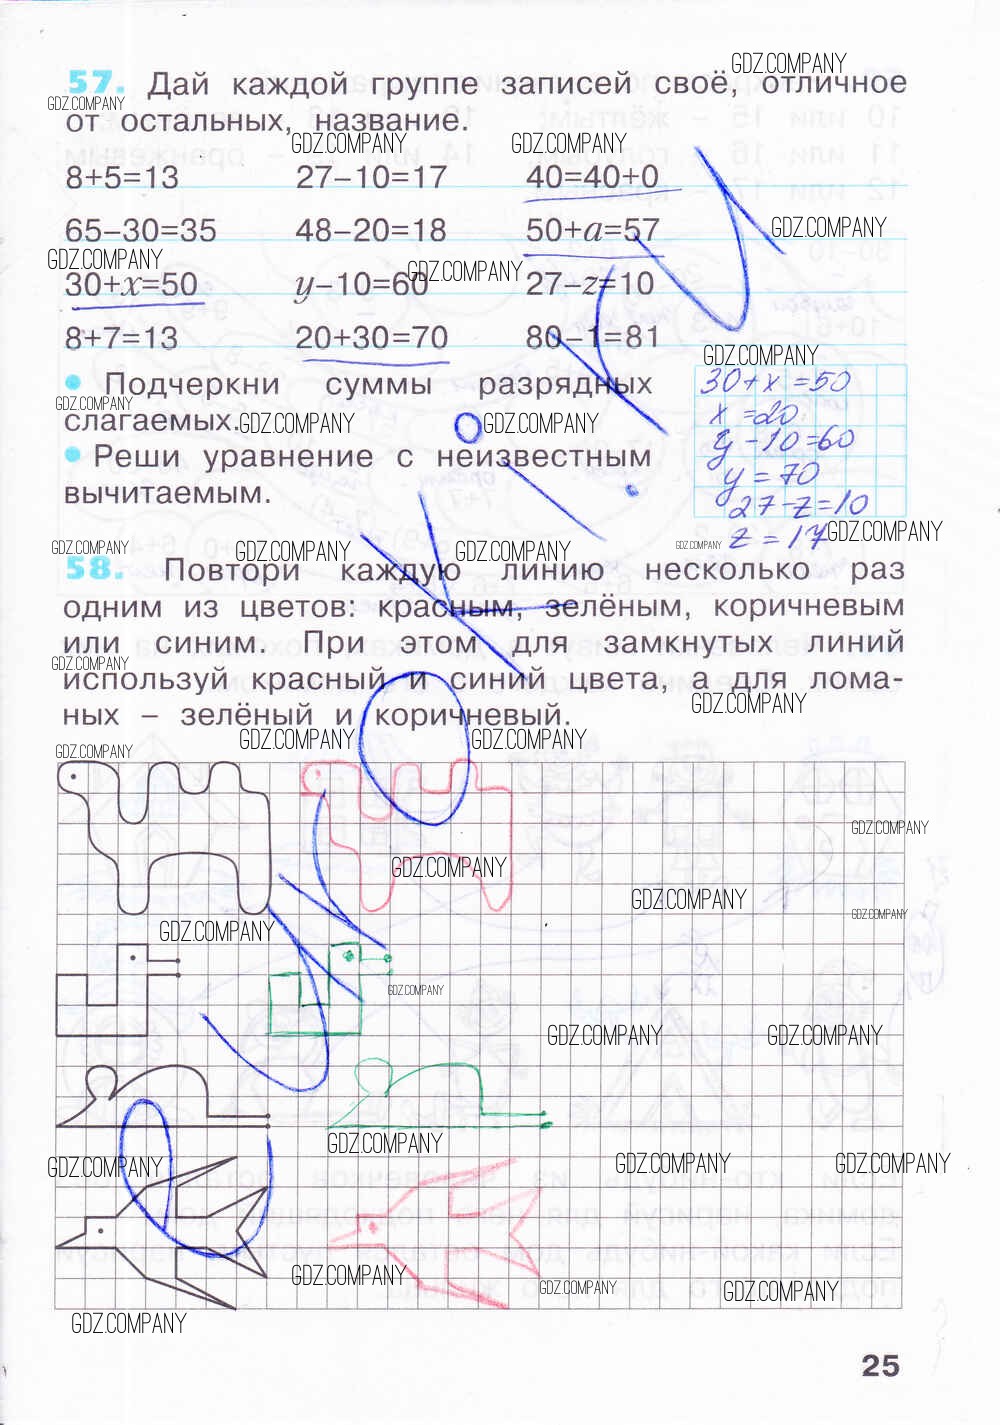 GDZ.COMPANY
57. Дай каждой группе записей своё, отличное
GDZ.COMPANY
от остальных, название.
GDZ.COMPANY GDZ.COMPANY
8+5=13 27−10=17 40=40+0
65−30=35 48−20=18 50+a=57 GDZ.COMPANY
GDZ.COMPANY GDZ.COMPANY
30+x=50 y−10=60 27−z=10
8+7=13 20+30=70 80−1=81
GDZ.COMPANY
• Подчеркни суммы разрядных
GDZ.COMPANY
слагаемых. GDZ.COMPANY GDZ.COMPANY
• Реши уравнение с неизвестным
вычитаемым.
30+x=50
x=20
y-10=60
y=70
27-z=10
z=17
GDZ.COMPANY
GDZ.COMPANY GDZ.COMPANY GDZ.COMPANY GDZ.COMPANY
58. Повтори каждую линию несколько раз
одним из цветов: красным, зелёным, коричневым
или синим. При этом для замкнутых линий
GDZ.COMPANY
используй красный и синий цвета, а для лома-
GDZ.COMPANY
ных – зелёный и коричневый.
GDZ.COMPANY GDZ.COMPANY
GDZ.COMPANY
GDZ.COMPANY
GDZ.COMPANY
GDZ.COMPANY
GDZ.COMPANY
GDZ.COMPANY
GDZ.COMPANY
GDZ.COMPANY GDZ.COMPANY
GDZ.COMPANY
GDZ.COMPANY GDZ.COMPANY GDZ.COMPANY
GDZ.COMPANY GDZ.COMPANY GDZ.COMPANY
GDZ.COMPANY
25